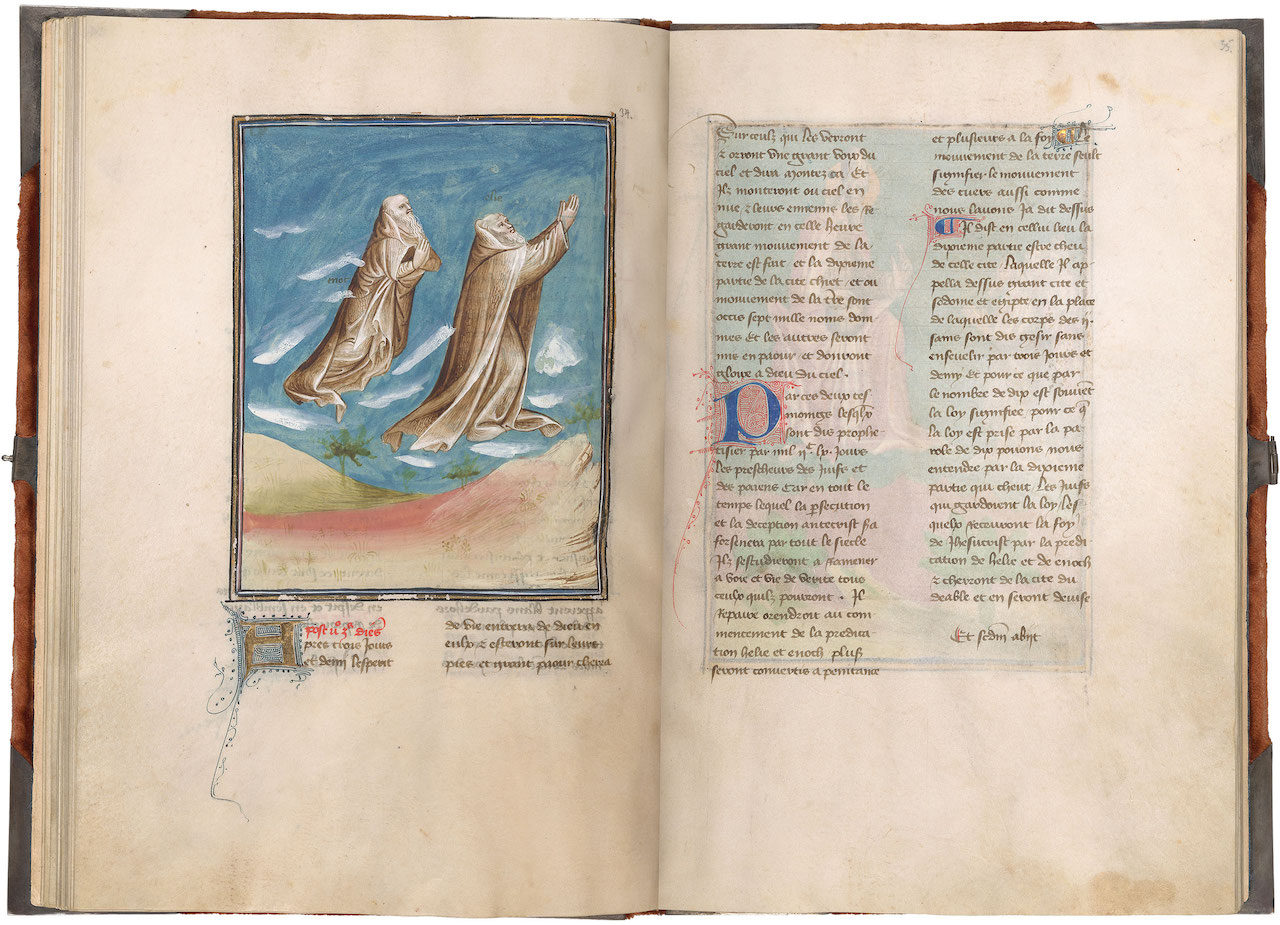 34.
elie
enoc
Post iiº. zm dies
Apres trois Jours
et demi lesperit
de vie entrera de dieu en
eulx & esteront sur leurs
pies et grant paour cherra
35.
Sur ceulx qui les verront
& orront vne grant voix du
ciel et dira montez ca Et
Ilz monteront ou ciel en
nue & leurs ennemis les Re
garderont en celle heure
grant mouuement de la
terre est fait et la dixieme
partie de la cite chiet et ou
mouuement de la tre sont
occis sept mille noms dom
mes Et les autres seront
mis en paour et donront
gloire a dieu du ciel .
Par ces deux tes
moings lesqlx
sont dis prophe
tisier par mil iic. lx. Jours
les prescheurs des Juifs et
des paiens Car en tout le
temps lequel la psecution
et la deception antecrist
par tout le siecle
Ilz sestudieront a Ramener
a voie et vie de verite tous
ceulx quilz pourront . Il
Repaire orendroit au com
mencement de la predica
tion helie et enoch plus
seront conuertis a penitance
et plusieurs a la foy Le
mouuement de la terre seult
signifier le mouuement
des cuers aussi comme
nous lauons Ja dit dessus
Il dist en cellui lieu la
dixieme partie estre cheu
de celle cite . laquelle Il ap
pella dessus grant cite et
sedome et egipte en la place
de laquelle les corps des ii.
sains sont dis gesir sans
enseuelir par trois Jours et
demy Et pour ce que par
le nombre de dix est souuent
la loy signifiee pour ce q
la loy est prise par la pa
role de dix pouons nous
entendre par la dixieme
partie qui cheut . les Juifs
qui gardoient la loy les
quelx Receuront la foy
de Jhesucrist par la predi
cation de helie et de enoch
& cherront de la cite du
deable et en seront deuise
Et sedm abijt